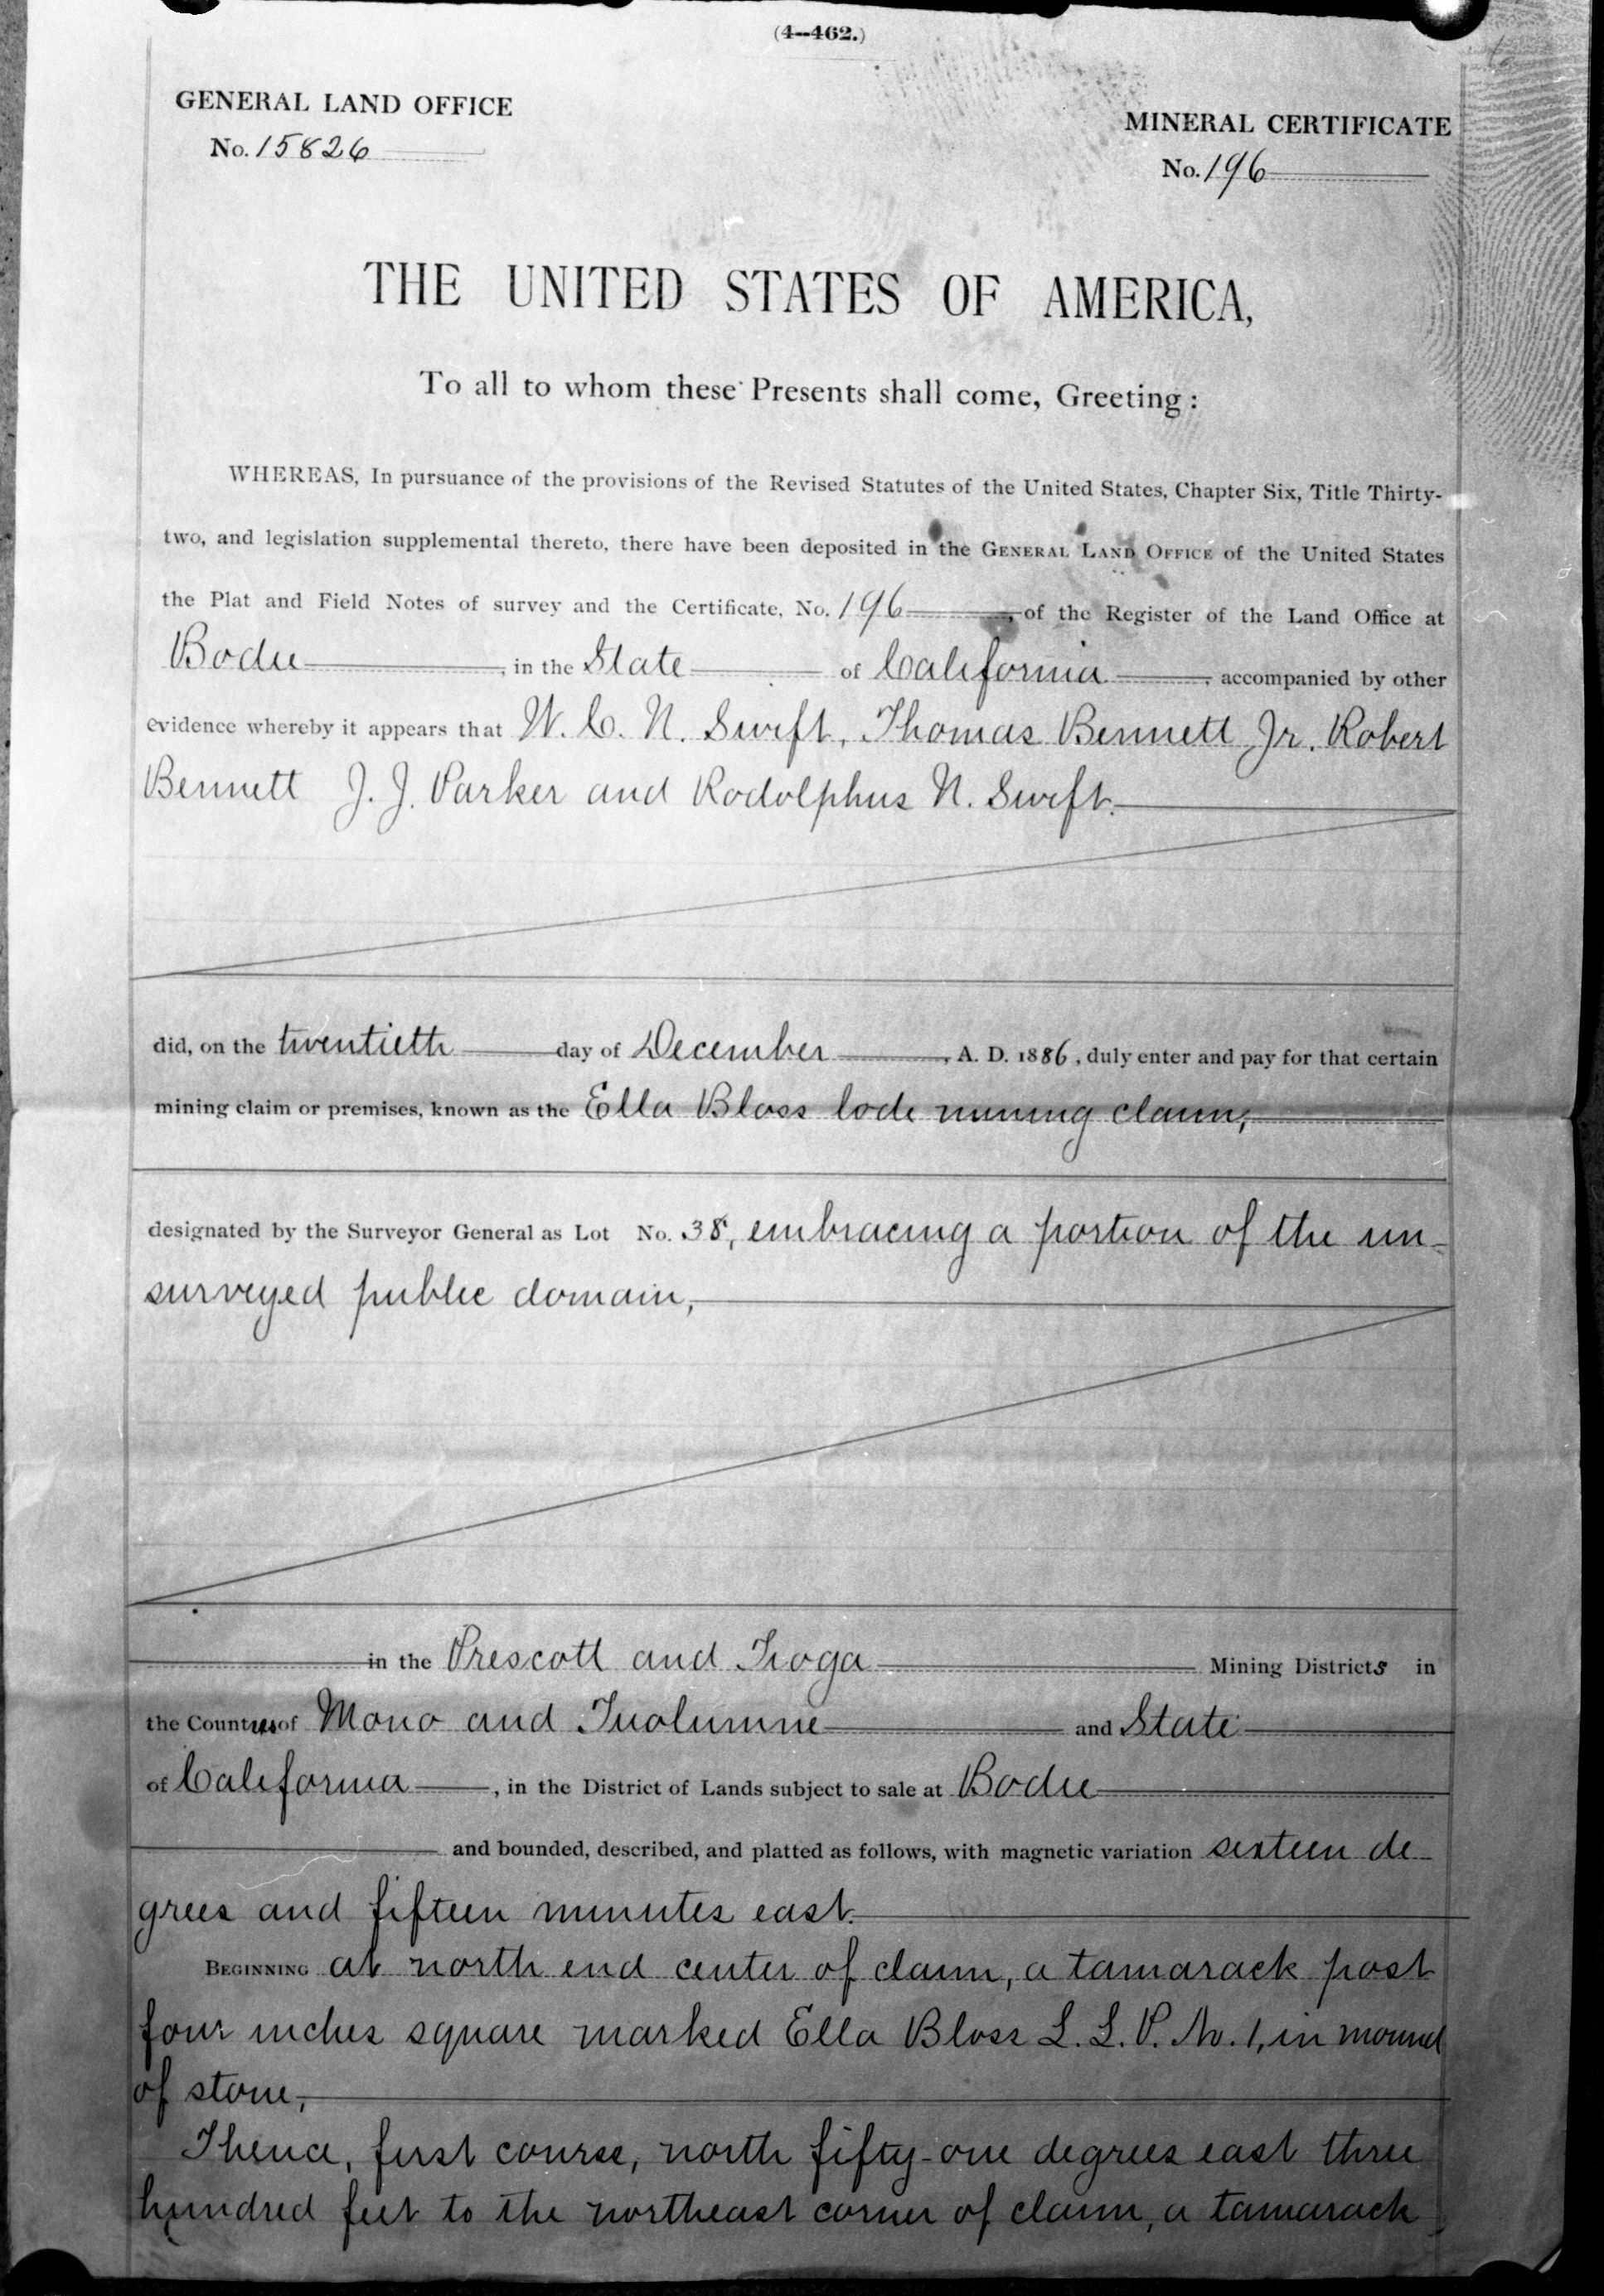 (4--462.)
GENERAL LAND OFFICE
No. 15826
MINERAL CERTIFICATE
No. 196
THE UNITED STATES OF AMERICA,
To all to whom these Presents shall come, Greeting:
WHEREAS, In pursuance of the provisions of the Revised Statutes of the United States, Chapter Six, Title Thirty-
two, and legislation supplemental thereto, there have been deposited in the GENERAL LAND OFFICE of the United States
the Plat and Field Notes of survey and the Certificate, No. 196, of the Register of the Land Office at
Bodie, in the State of California, accompanied by other
evidence whereby it appears that W. C. N. Swift, Thomas Bennett Jr. Robert
Bennett J. J. Parker and Rodolphus N. Swift.
did, on the twentieth day of December, A. D. 1886, duly enter and pay for that certain
mining claim or premises, known as the Ella Bloss lode mining claim,
designated by the Surveyor General as Lot No. 38, embracing a portion of the un-
surveyed public domain,
in the Prescott and Tioga Mining Districts in
the Counties of Mono and Tuolumne and State
of California, in the District of Lands subject to sale at Bodie
and bounded, described, and platted as follows, with magnetic variation sixteen de-
grees and fifteen minutes east.
BEGINNING at north end center of claim, a tamarack post
four inches square marked Ella Bloss L. L. P. No. 1, in mound
of stone,
Thence, first course, north fifty-one degrees east three
hundred feet to the northeast corner of claim, a tamarack